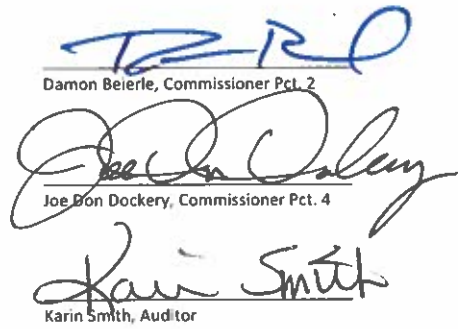 Damon Beierle, Commissioner Pct. 2
Joe Don Dockery
Joe Don Dockery, Commissioner Pct. 4
Karin Smith
Karin Smith, Auditor